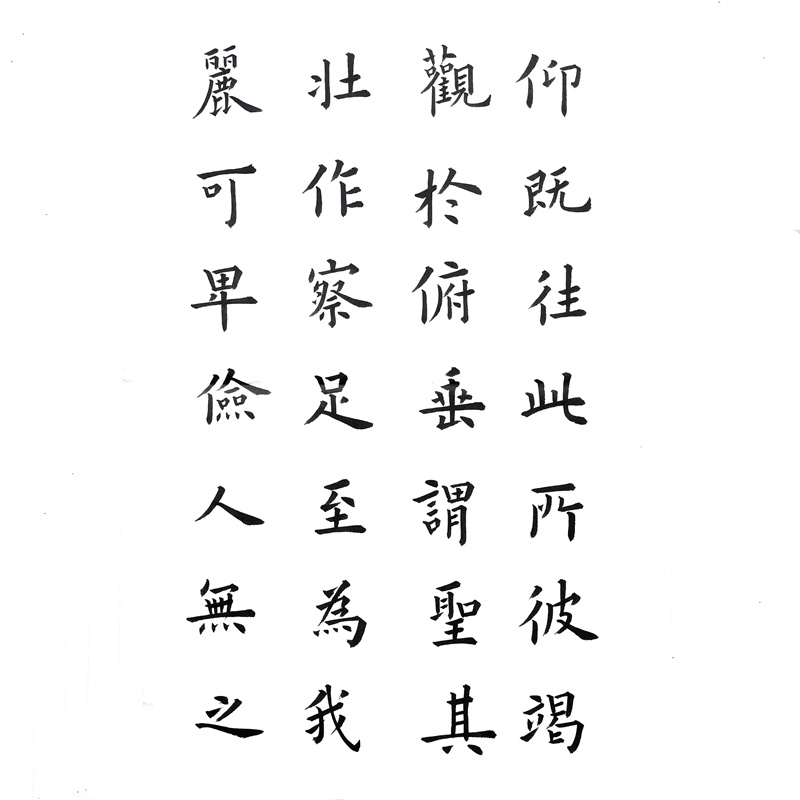 仰既往此所彼竭
觀於俯垂謂聖其
壯作察足至為我
麗可卑儉人無之